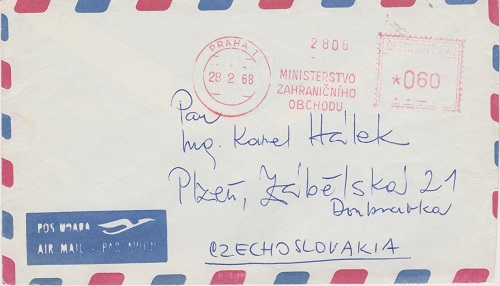 PRAHA 1
28 2 68
2806
MINISTERSTVO
ZAHRANIČNÍHO
OBCHODU
ČESKOSLOVENSKO
*060
Pan
Ing. Karel Hálek
Plzeň, Zábělská 21
Doubravka
CZECHOSLOVAKIA
POS UDARA
AIR MAIL - PAR AVION